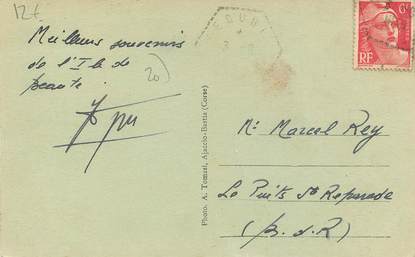 12€
Meilleurs souvenirs
de l'Ile de
beauté.
20
Photo. A. Tomasi, Ajaccio-Bastia (Corse)
RF
Mr Marcel Rey
Le Puits St Reparade
(B. d. R)